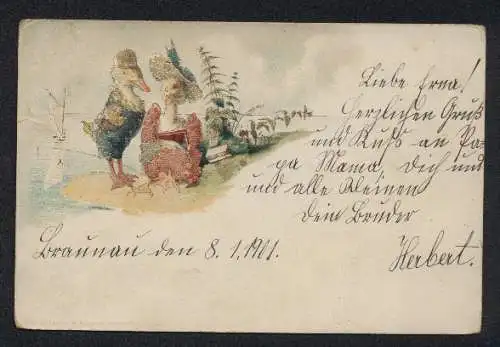 Liebe Erna!
Herzlichen Gruß
und Kuß an Pa-
pa Mama, Dich und
und alle Kleinen
Dein Bruder
Herbert.
Braunau den 8. 1. 1901.